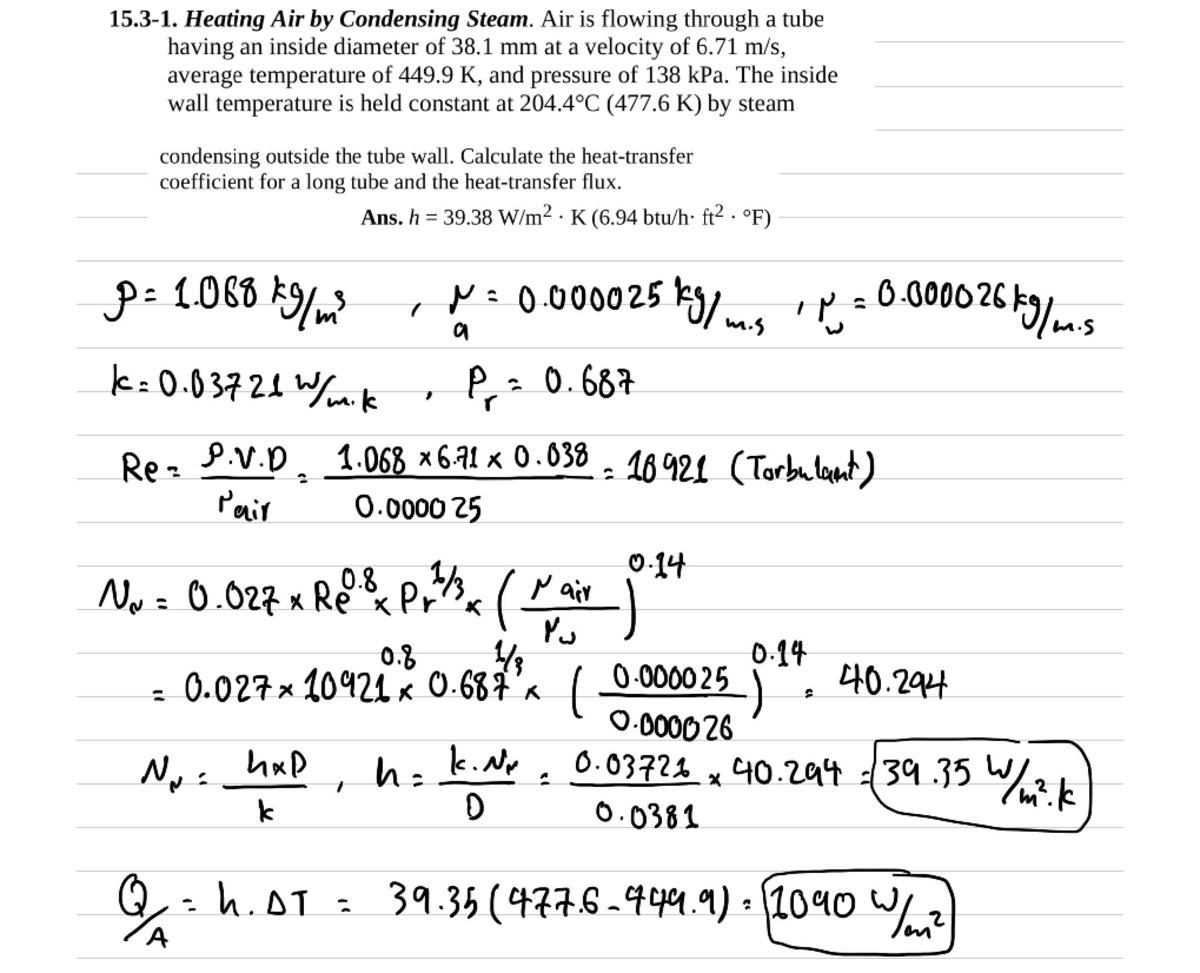 15.3-1. Heating Air by Condensing Steam. Air is flowing through a tube
having an inside diameter of 38.1 mm at a velocity of 6.71 m/s,
average temperature of 449.9 K, and pressure of 138 kPa. The inside
wall temperature is held constant at 204.4°C (477.6 K) by steam
condensing outside the tube wall. Calculate the heat-transfer
coefficient for a long tube and the heat-transfer flux.
Ans. h = 39.38 W/m² · K (6.94 btu/h· ft² · °F)
ρ = 1.068 kg/m³ , μa = 0.000025 kg/m.s , μw = 0.000026 kg/m.s
k = 0.03721 W/m.k , Pr = 0.687
Re = ρ.V.D / μair = 1.068 × 6.71 × 0.038 / 0.000025 = 10921 (Torbulant)
Nu = 0.027 × Re^0.8 × Pr^1/3 × (μair / μw)^0.14
= 0.027 × 10921^0.8 × 0.687^1/3 × (0.000025 / 0.000026)^0.14 = 40.294
Nu = h×D / k , h = k.Nu / D = 0.03721 / 0.0381 × 40.294 = 39.35 W/m².k
Q/A = h.ΔT = 39.35 (477.6 - 449.9) = 1090 W/m²